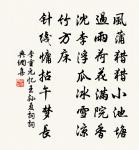 風蒲猎猎小池塘
過雨荷花滿院香
沈李浮瓜冰雪涼
竹方床
針線慵拈午夢長
李重元忆王孙夏詞詞
典網集